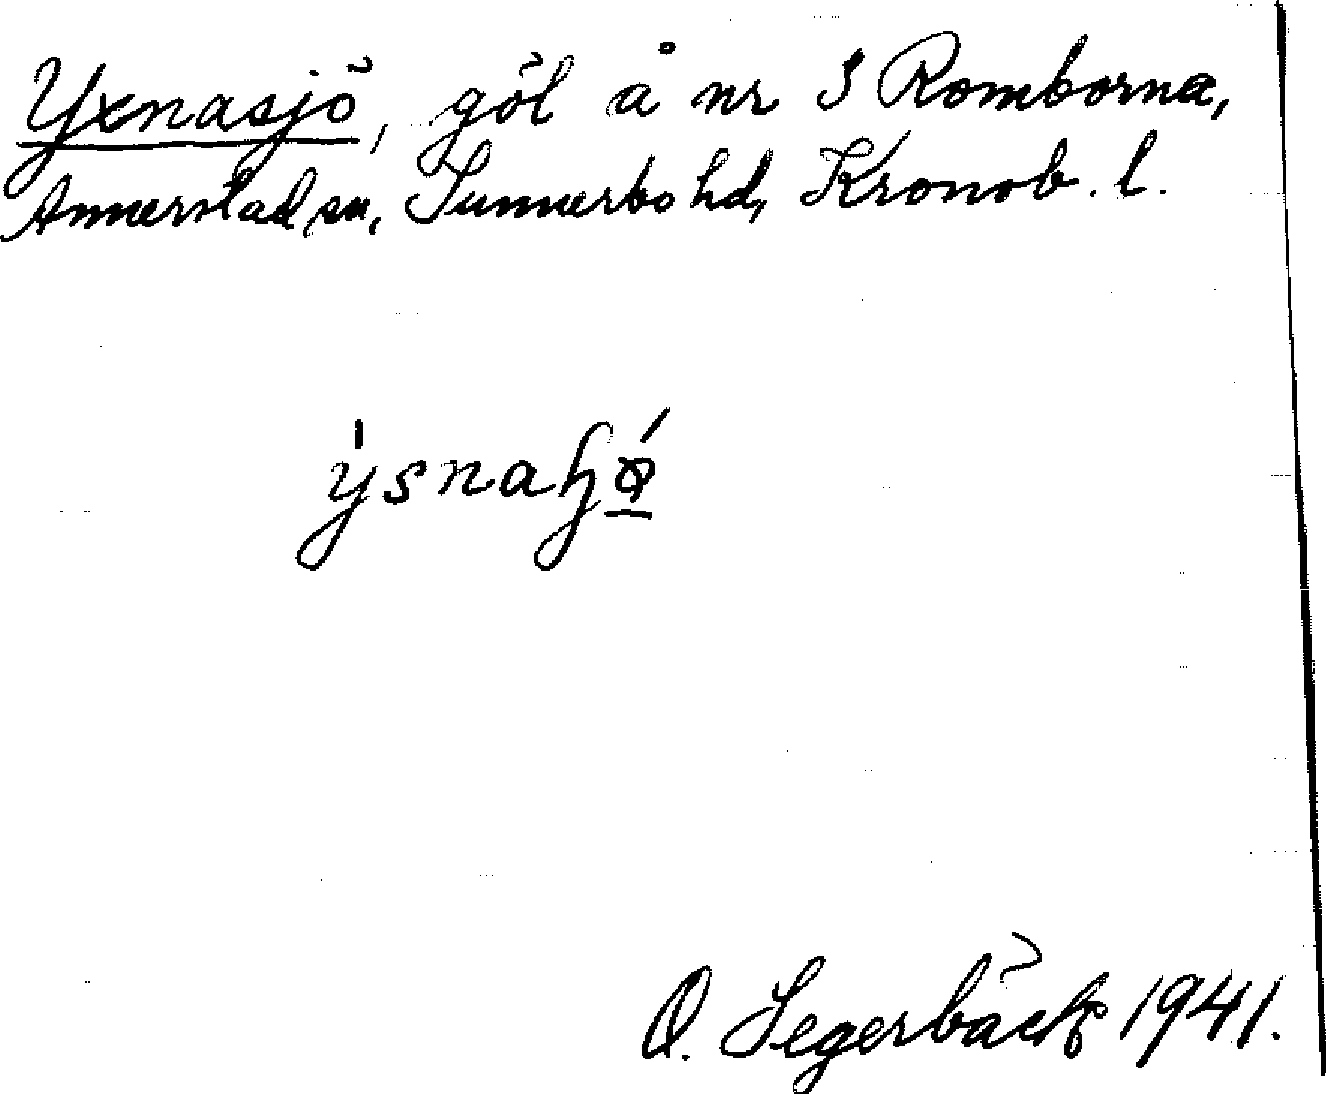 Yxnasjö, göl å nr 3 Romborna,
Annerstad sn, Sunnerbo hd, Kronob. l.
O. Segerbäck 1941.